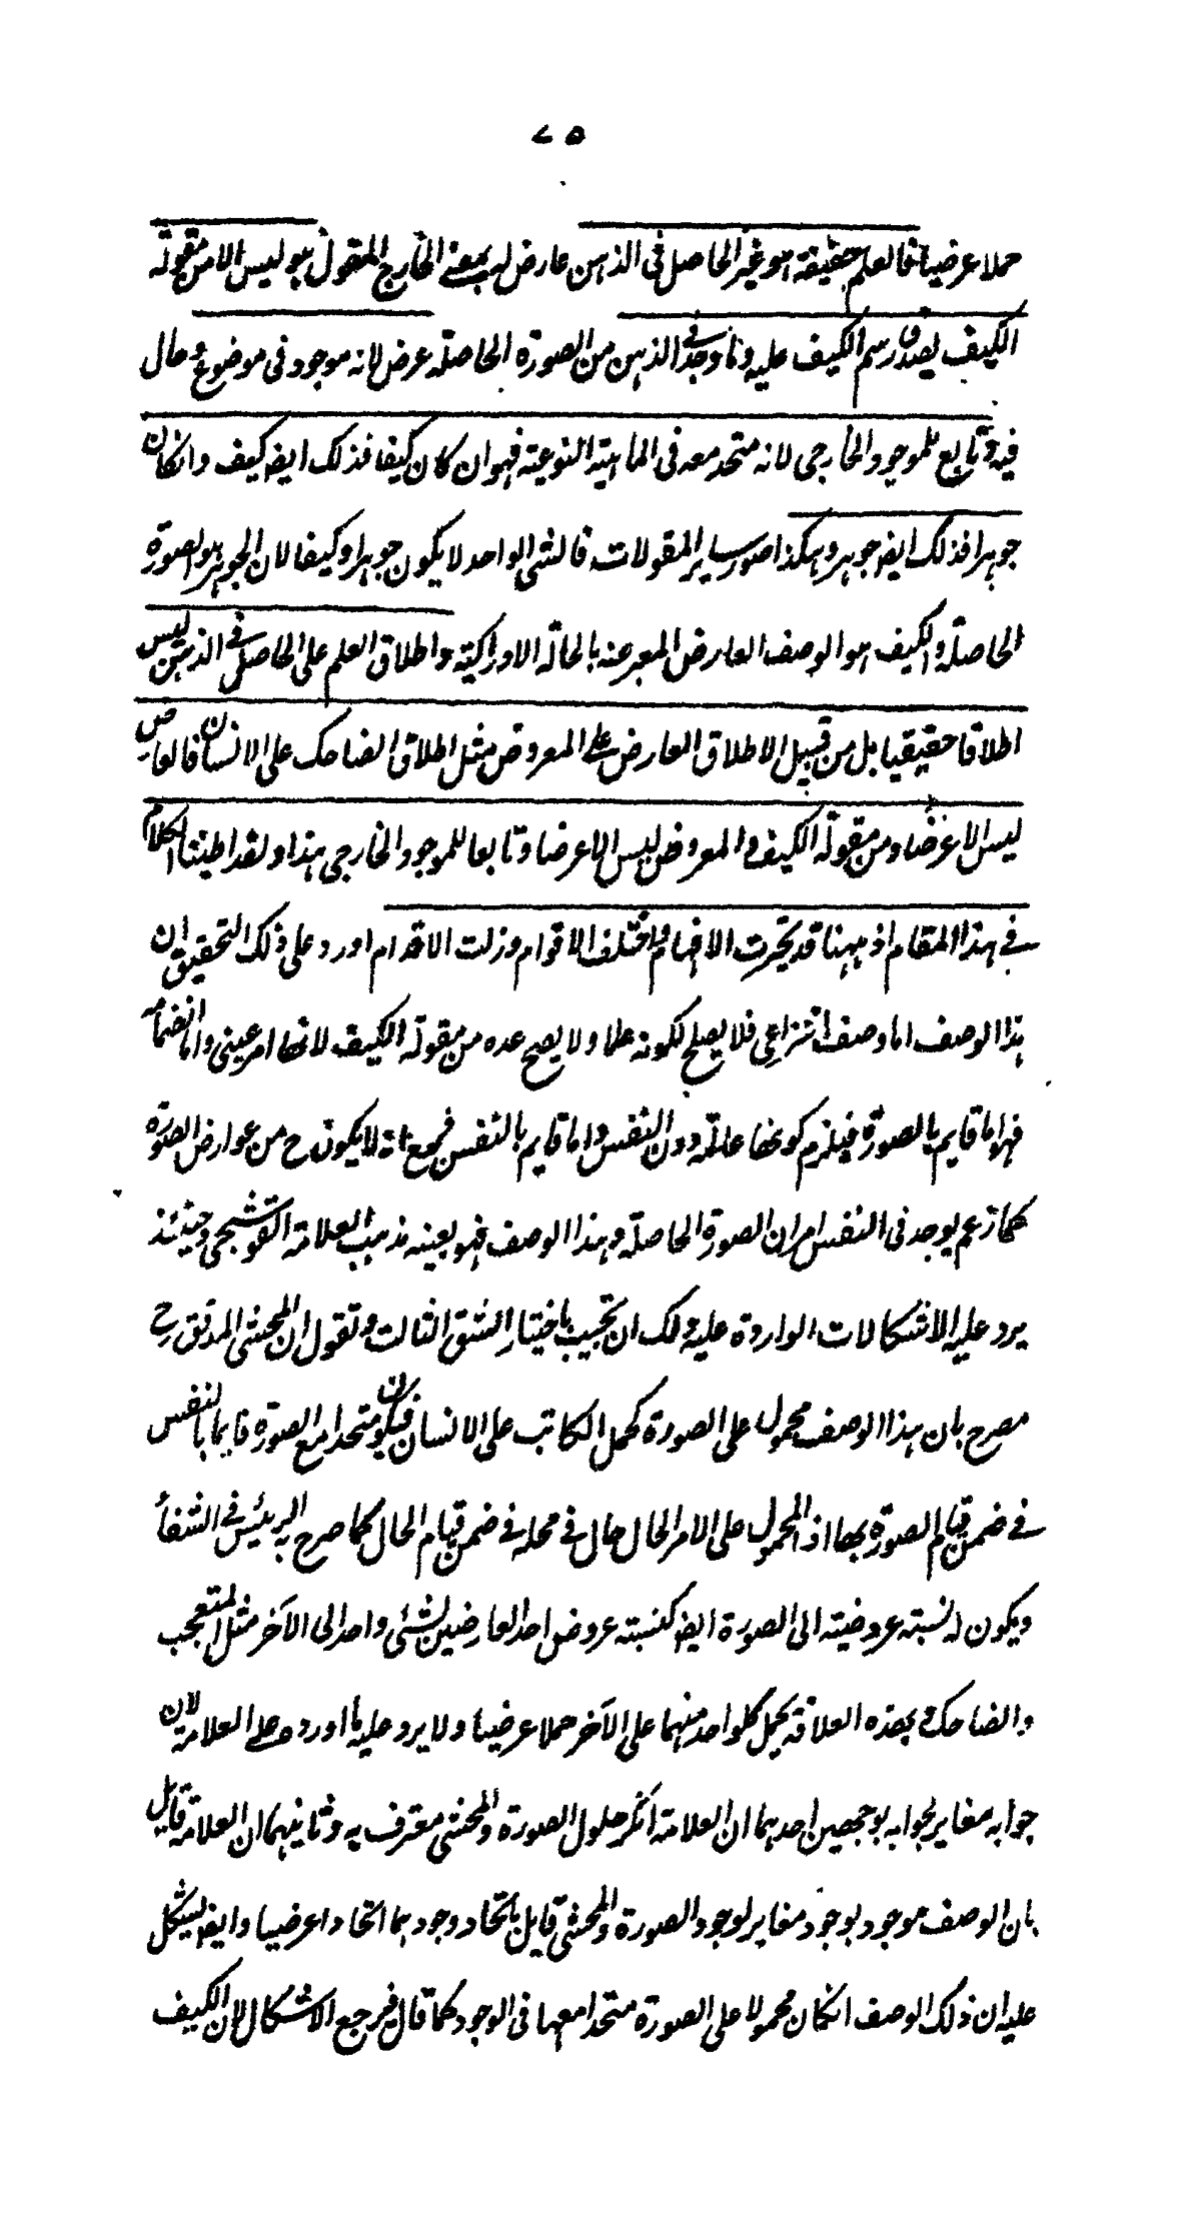 ٧٥
حملا عرضيا فالعلم حقيقة هو غير الحاصل فى الذهن عارض له بمعنى الخارج المقول هو ليس الا من مقولة
الكيف يصدق رسم الكيف عليه وما وجد فى الذهن من الصورة الحاصلة عرض لانه موجود فى موضوع وحال
فيه وتابع للموجود الخارجى لانه متحد معه فى الماهية النوعية فهو ان كان كيفا فذلك ايضا كيف وانكان
جوهرا فذلك ايضا جوهر وهكذا صور ساير المقولات فالشى الواحد لا يكون جوهرا وكيفا لان الجوهر هو الصورة
الحاصلة والكيف هو الوصف العارض المعبر عنه بالحالة الادراكية واطلاق العلم على الحاصل فى الذهن ليس
اطلاقا حقيقيا بل من قبيل الاطلاق العارض على المعروض مثل اطلاق الضاحك على الانسان فالعارض
ليس الا عرضا ومن مقولة الكيف والمعروض ليس الا عرضا وتابعا للموجود الخارجى هذا ولقد اطنبنا الكلام
فى هذا المقام اذ ههنا قد تحيرت الافهام واختلف الاقوام وزلت الاقدام اورد على ذلك التحقيق ان
هذا الوصف اما وصف انتزاعى فلا يصلح لكونه علما ولا يصح عده من مقولة الكيف لانها امر عينى واما انضمامى
فهو اما قايم بالصورة فيلزم كونها عالمة دون النفس واما قايم بالنفس فمع انه لا يكون ح من عوارض الصورة
كما زعم يوجد فى النفس امران الصورة الحاصلة وهذا الوصف فهو بعينه مذهب العلامة القوشجى وحينئذ
يرد عليه الاشكالات الواردة عليه ولك ان تجيب باختيار الشق الثالث وتقول ان المحشى المدقق رح
مصرح بان هذا الوصف محمول على الصورة كحمل الكاتب على الانسان فيكون متحدا مع الصورة قايما بالنفس
فى ضمن قيام الصورة بها اذ المحمول على الامر الحال حال فى محله فى ضمن قيام الحال كما صرح به الرئيس فى الشفاء
ويكون له نسبة عروضية الى الصورة ايضا كنسبة عروض احد العارضين لشئى واحد الى الآخر مثل المتعجب
والضاحك وبهذه العلاقة يحمل كلواحد منهما على الآخر حملا عرضيا ولا يرد عليه ما اورده على العلامة لان
جوابه مغاير لجوابه بوجهين احدهما ان العلامة انكر حلول الصورة والمحشى معترف به وثانيهما ان العلامة قايل
بان الوصف موجود بوجود مغاير لوجود الصورة والمحشى قايل باتحاد وجودهما اتحادا عرضيا وايضا يشكل
عليه ان ذلك الوصف انكان محمولا على الصورة متحدا معها فى الوجود كما قال فيرجع الاشكال لان الكيف